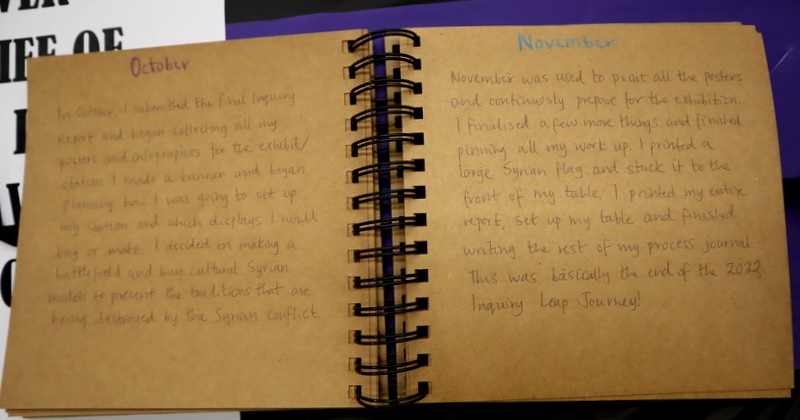 VER
IFE OF
October
In October, I submitted the final Inquiry
Report and began collecting all my
posters and infographics for the exhibit/
station. I made a banner and began
planning how I was going to set up
my station and which displays I would
buy or make. I decided on making a
battlefield and buy cultural Syrian
models to present the traditions that are
being destroyed by the Syrian conflict.
November
November was used to print all the posters
and continuously prepare for the exhibition.
I finalised a few more things and finished
pinning all my work up. I printed a
large Syrian flag and stuck it to the
front of my table. I printed my entire
report, set up my table and finished
writing the rest of my process journal.
This was basically the end of the 2022
Inquiry Leap Journey!